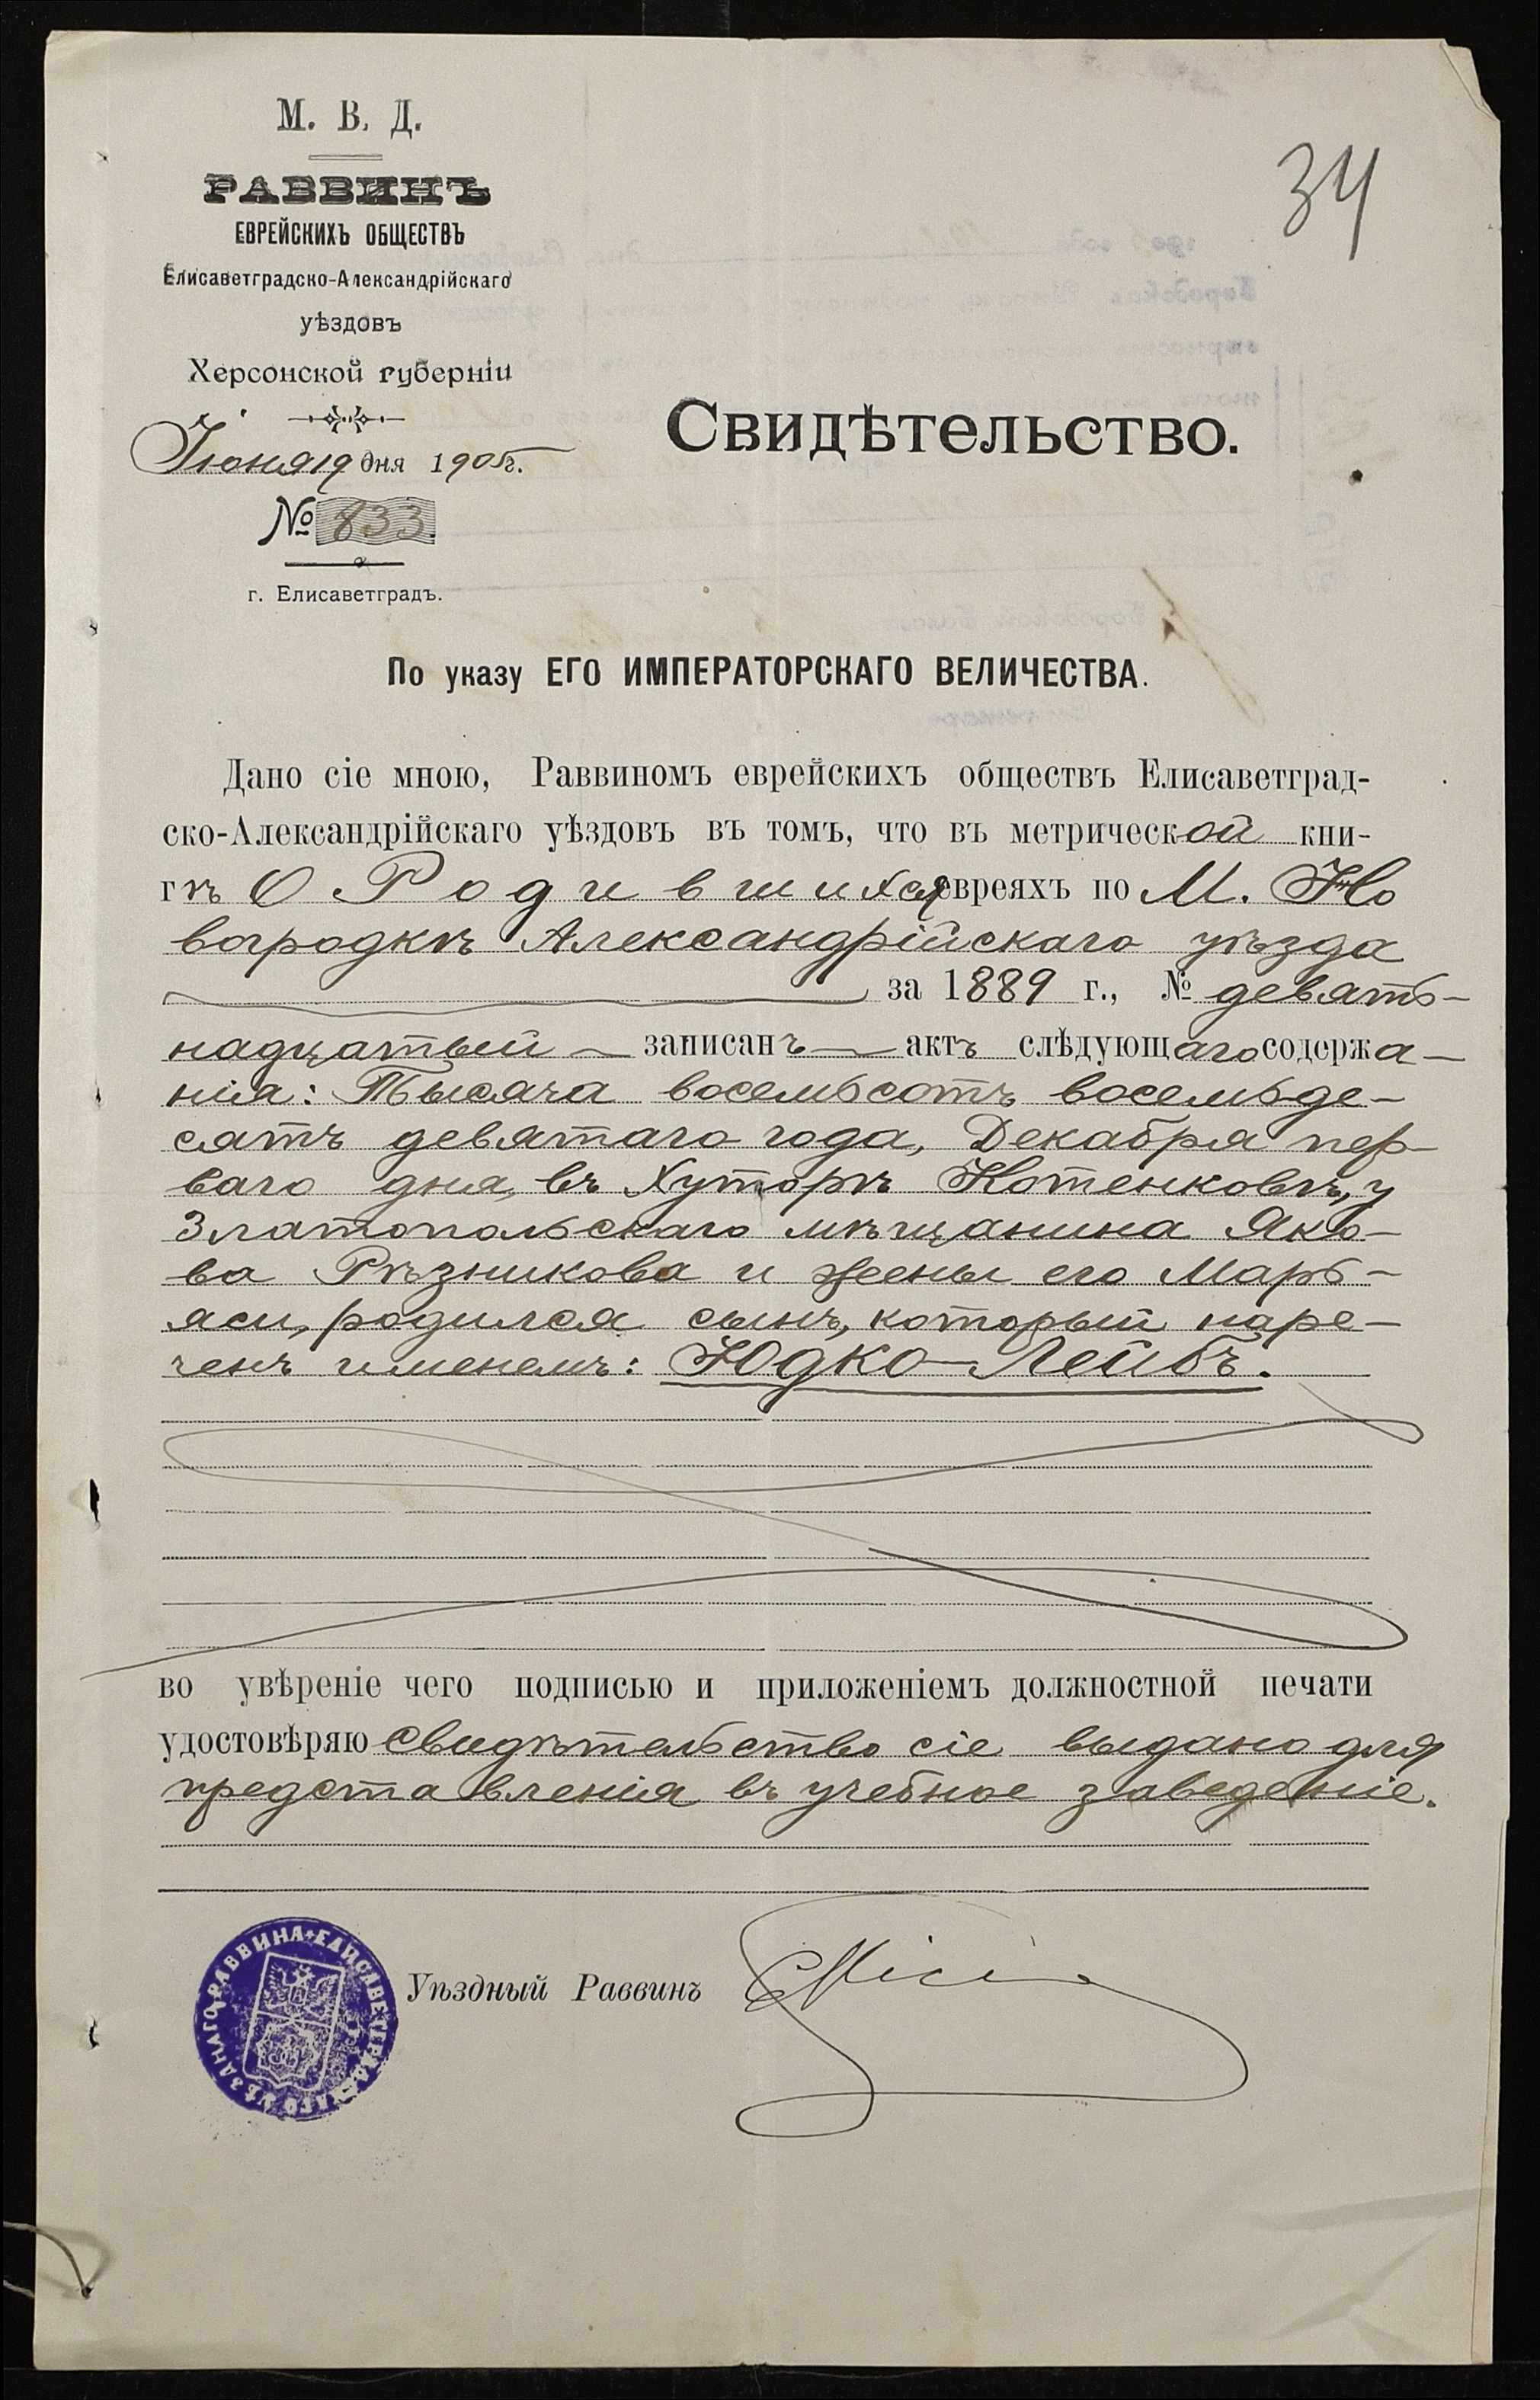 М. В. Д.
34
РАВВИНЪ
ЕВРЕЙСКИХЪ ОБЩЕСТВЪ
Елисаветградско-Александрійскаго
уѣздовъ
Херсонской губерніи
Іюня 19 дня 1905г.
№ 833
г. Елисаветградъ.
Свидѣтельство.
По указу ЕГО ИМПЕРАТОРСКАГО ВЕЛИЧЕСТВА.
Дано сіе мною, Раввиномъ еврейскихъ обществъ Елисаветград-
ско-Александрійскаго уѣздовъ въ томъ, что въ метрической кни-
гѣ О Родившихся евреяхъ по М. Но
вогродкѣ Александрійскаго уѣзда
за 1889 г., № девят-
надцатый записанъ актъ слѣдующаго содержа-
нія: Тысяча восемьсотъ восемьде-
сятъ девятаго года, Декабря пер-
ваго дня, въ Хуторѣ Котенковѣ, у
Златопольскаго мѣщанина Яко-
ва Рѣзникова и жены его Марь-
яси, родился сынъ, который наре-
ченъ именемъ: Юдко-Лейбъ.
во увѣреніе чего подписью и приложеніемъ должностной печати
удостовѣряю Свидѣтельство сіе выдано для
представленія въ учебное заведеніе.
Уѣздный Раввинъ
РАВВИНА ЕЛИСАВЕТГРАДСКАГО УѢЗДНАГО